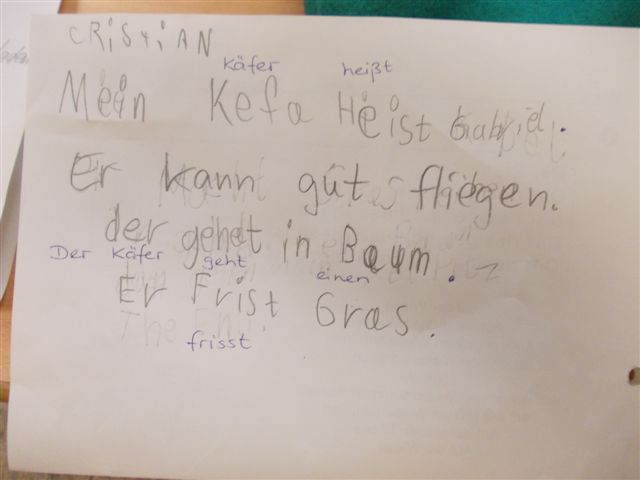 CRiStiAN
Käfer heißt
Mein Kefa Heist Gabriel.
Er kann gut fliegen.
der gehet in Baum.
Der Käfer geht einen
Er Frist Gras.
The End!
frisst